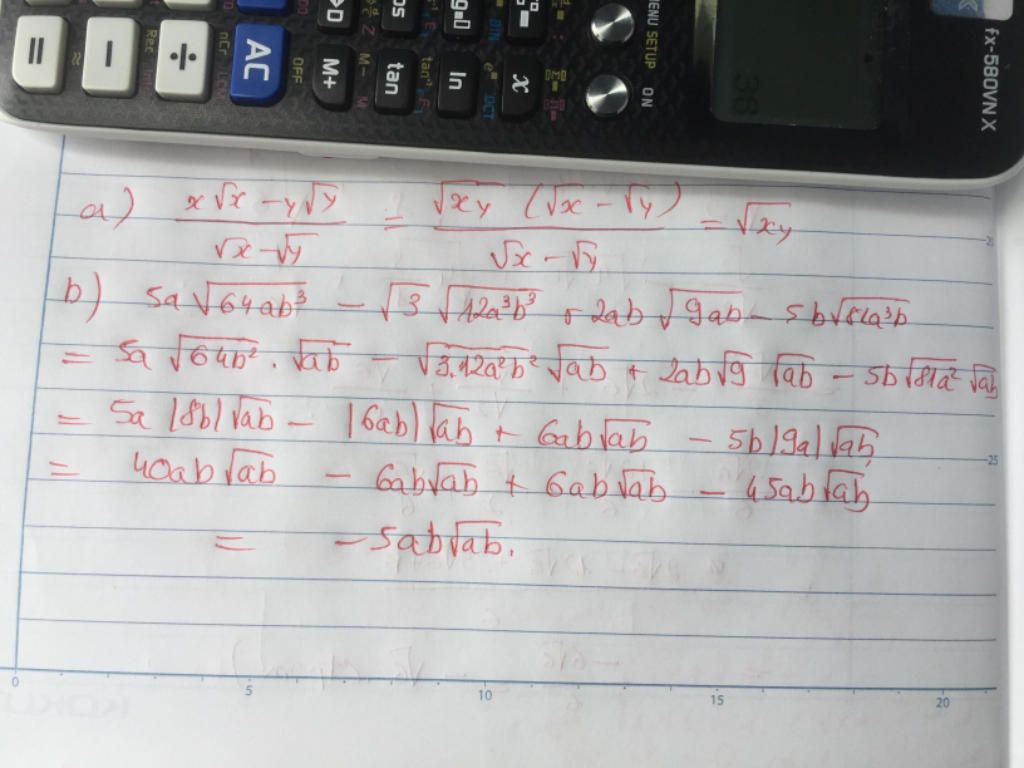 fx-580VN X
MENU SETUP ON
38
OFF
= − ÷ AC
M+ tan ln x
a) x√x − y√y / √x − √y = √xy (√x − √y) / √x − √y = √xy
b) 5a √64ab³ − √3 √12a³b³ + 2ab √9ab − 5b√81a³b
= 5a √64b² . √ab − √3.12a²b² √ab + 2ab√9 √ab − 5b√81a² √ab
= 5a |8b|√ab − |6ab|√ab + 6ab√ab − 5b|9a|√ab
= 40ab√ab − 6ab√ab + 6ab√ab − 45ab√ab
= −5ab√ab.
0 5 10 15 20
25